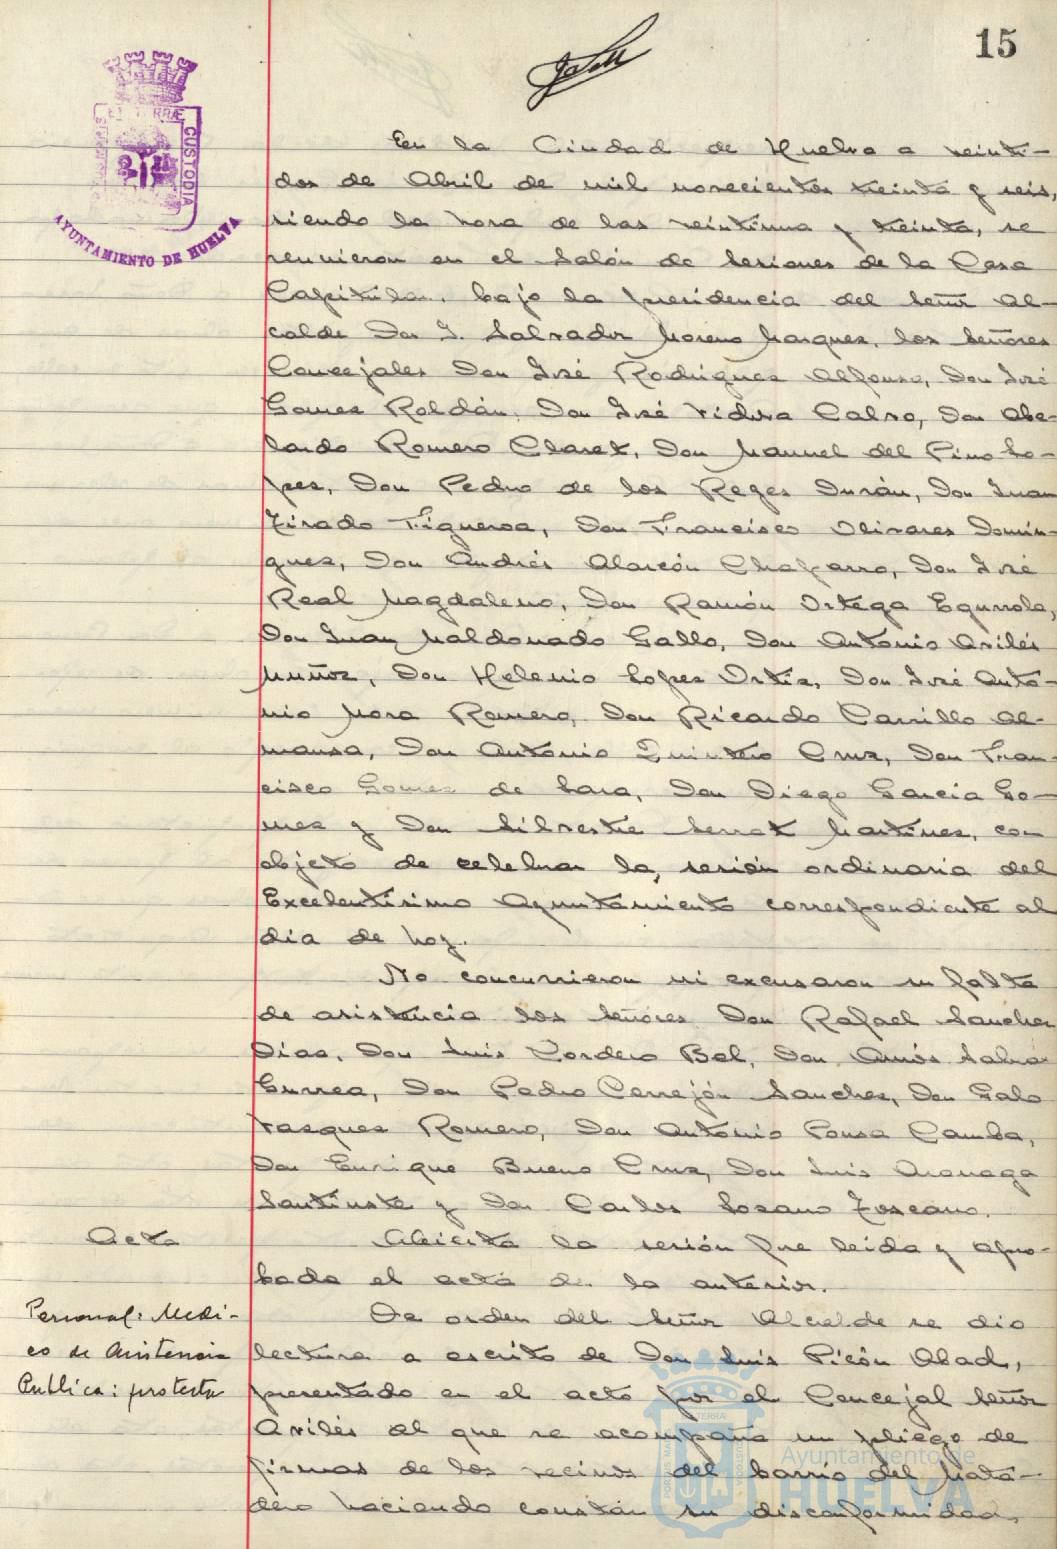 15
PORTUS MARIS ET TERRÆ CUSTODIA
AYUNTAMIENTO DE HUELVA
En la Ciudad de Huelva a veinti-
dos de Abril de mil novecientos treinta y seis,
siendo la hora de las veintiuna y treinta, se
reunieron en el Salón de Sesiones de la Casa
Capitular, bajo la presidencia del Señor Al-
calde Don J. Salvador Moreno Marquez, los Señores
Concejales Don José Rodriguez Alfonso, Don José
Gomez Roldán, Don José Vidosa Calvo, Don Abe-
lardo Romero Claret, Don Manuel del Pino Lo-
pez, Don Pedro de los Reyes Durán, Don Juan
Tirado Figueroa, Don Francisco Olivares Domin-
guez, Don Andrés Alarcón Chaparro, Don José
Real Magdaleno, Don Ramón Ortega Egurrola,
Don Juan Maldonado Gallo, Don Antonio Avilés
Muñoz, Don Helenio Lopez Ortiz, Don José Anto-
nio Mora Romero, Don Ricardo Carrillo Al-
mansa, Don Antonio Quintero Cruz, Don Fran-
cisco Gomez de Lara, Don Diego Garcia Go-
mez y Don Silvestre Serrat Martinez, con
objeto de celebrar la sesión ordinaria del
Excelentísimo Ayuntamiento correspondiente al
dia de hoy.
No concurrieron ni excusaron su falta
de asistencia los Señores Don Rafael Sanchez
Diaz, Don Luis Cordero Bel, Don Amós Sabrás
Gurrea, Don Pedro Cerrejón Sanchez, Don Galo
Vazquez Romero, Don Antonio Pousa Camba,
Don Enrique Bueno Cruz, Don Luis
y Don Carlos Lozano Toscano.
Acta
Abierta la sesión fue leida y apro-
bada el acta de la anterior.
Personal: Médi-
co de Asistencia
Publica: protesta
De orden del Señor Alcalde se dio
lectura a escrito de Don Luis Picón Abad,
presentado en el acto por el Concejal Señor
Avilés al que se acompaña un pliego de
firmas de los vecinos del barrio del Mata-
dero haciendo constar su disconformidad,
Ayuntamiento de
HUELVA